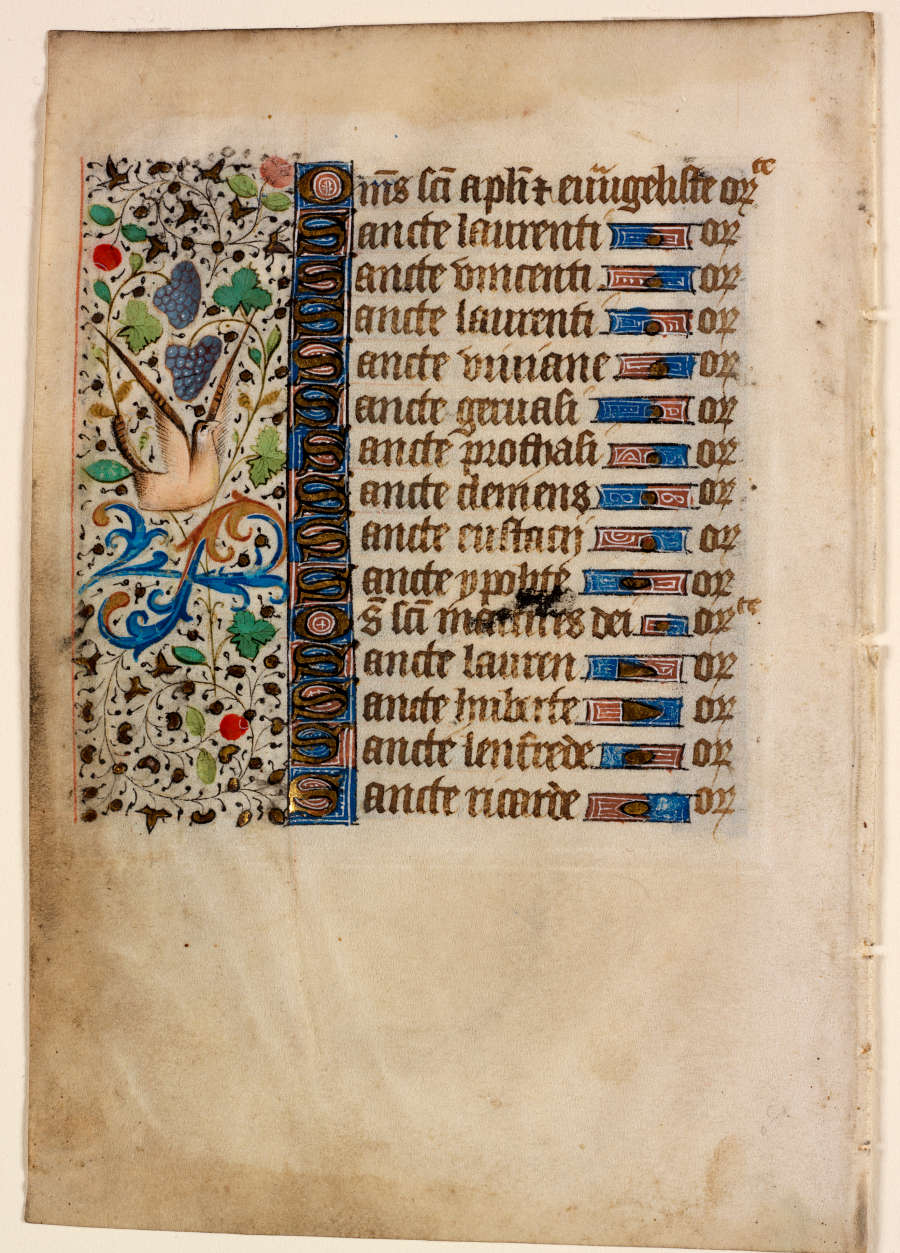 Om̅s sc̅i apl̅i ⁊ euu̅ugeliste or te
Sancte laurenti or
Sancte vincenti or
Sancte laurenti or
Sancte viuiane or
Sancte geruasi or
Sancte prothasi or
Sancte clemens or
Sancte eustacij or
Sancte ypolite or
Os̅ sc̅i martires dei or te
Sancte lauren or
Sancte huberte or
Sancte lenfrede or
Sancte ricarde or